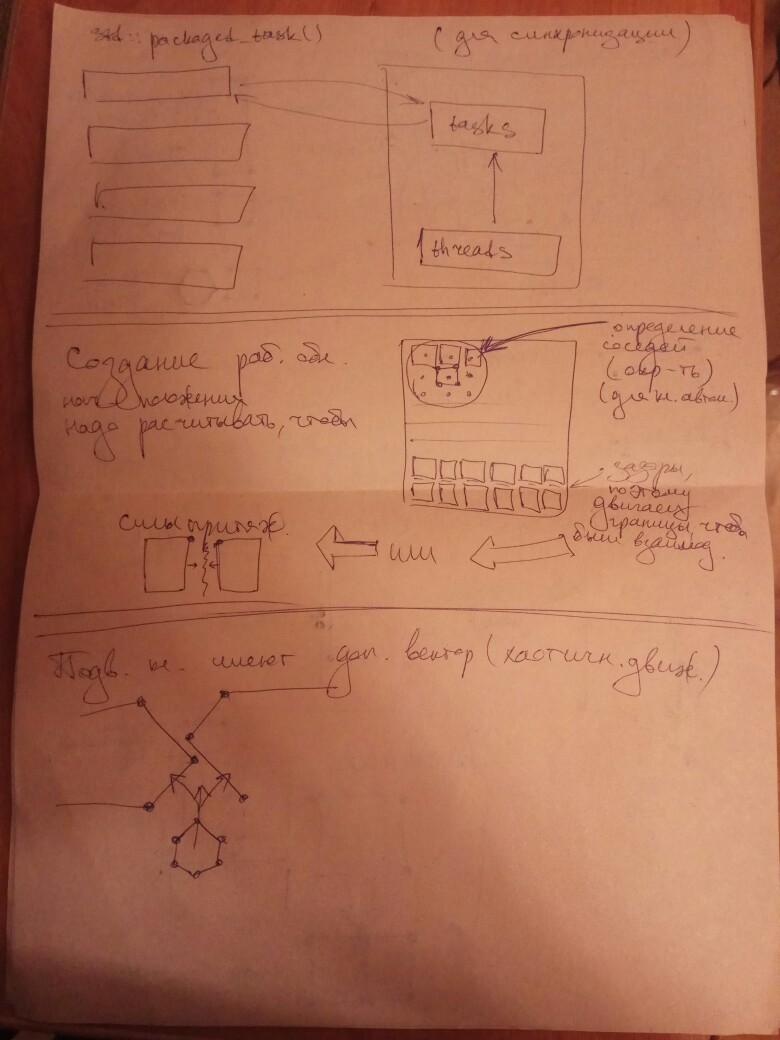 std::packaged_task()
(для синхронизации)
tasks
threads
Создание раб. обл.
положения
надо расчитывать, чтобы
определение
соседей
(окр-ть)
(для к. автом.)
зазоры,
поэтому
двигаем
границы, чтобы
были взаимод.
силы притяж.
или
Подв. к. имеют доп. вектор (хаотичн. движ.)